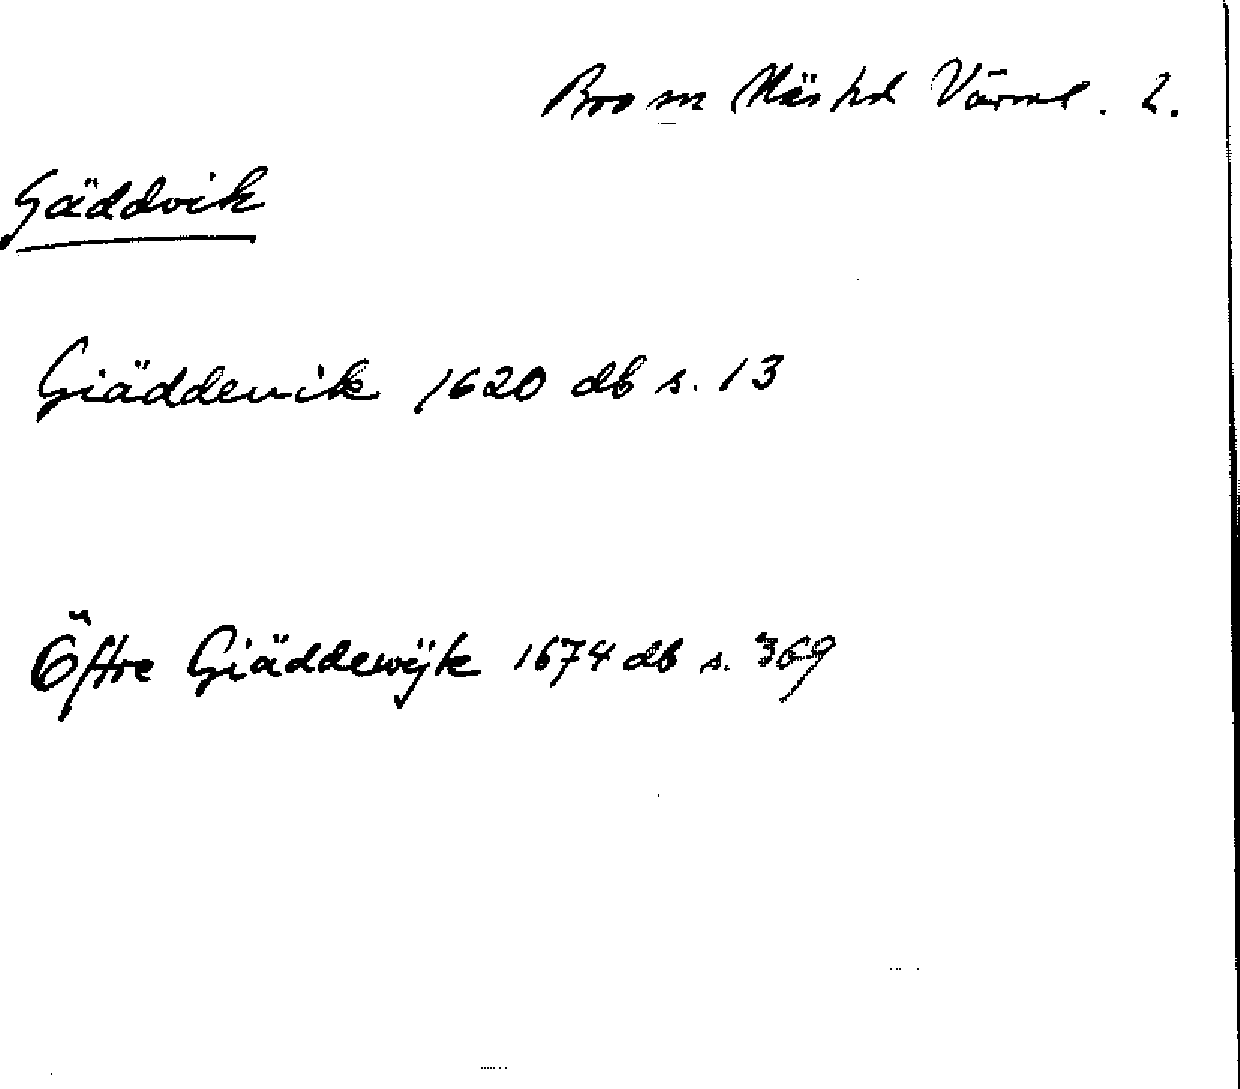 Bro sn Näs hd Värml. 2.
Gäddvik
Giäddeuik 1620 db s. 13
Öftre Giäddewÿk 1674 db s. 369